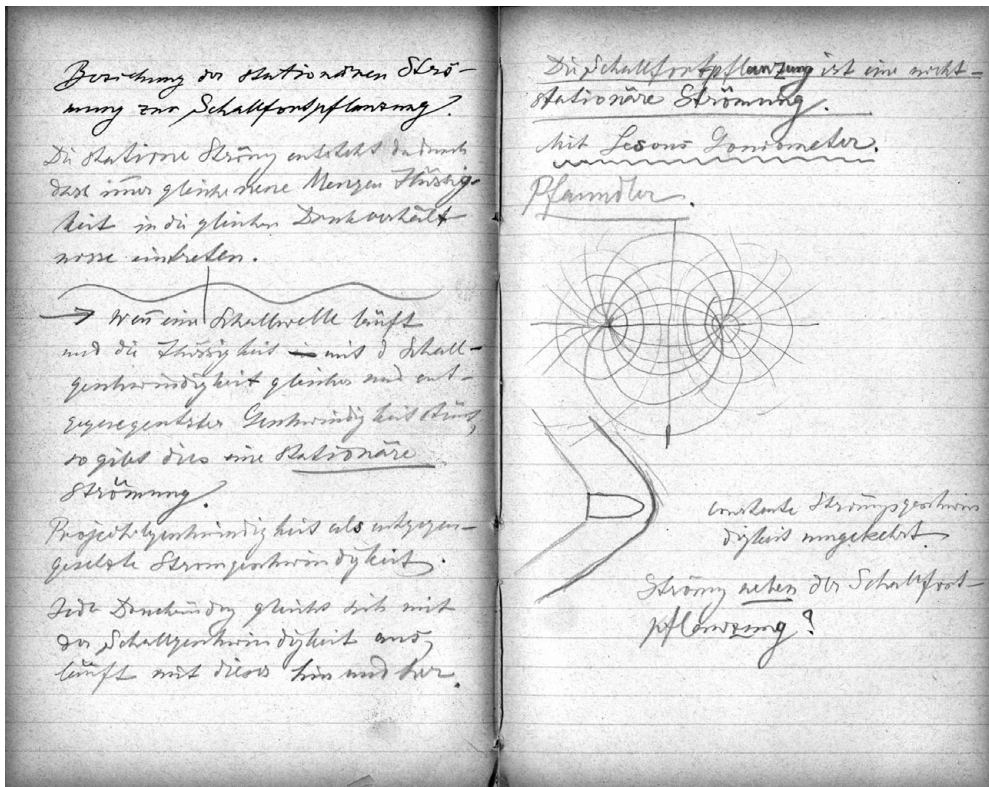 Beziehung der stationären Strö-
mung zur Schallfortpflanzung?
Die statione Ströng entsteht dadurch
dass immer gleiche neue Mengen Flüssig-
keit in die gleichen Druckverhält
nisse eintreten.
Wenn eine Schallwelle läuft
und die Flüssigkeit mit d Schall-
geschwindigkeit gleicher und ent-
Geschwindigkeit
so gibt dies eine stationäre
Strömung?
Projectilgeschwindigkeit als entgegen-
gesetzte Stromgeschwindigkeit.
Jede gleicht sich mit
der Schallgeschwindigkeit aus,
läuft mit dieser hin und her.
Die Schallfortpflanzung ist eine nicht-
stationäre Strömung.
Mit Goniometer.
Pfaundler.
constante Strömgsgeschwin
digkeit umgekehrt
Strömg neben der Schallfort-
pflanzung?